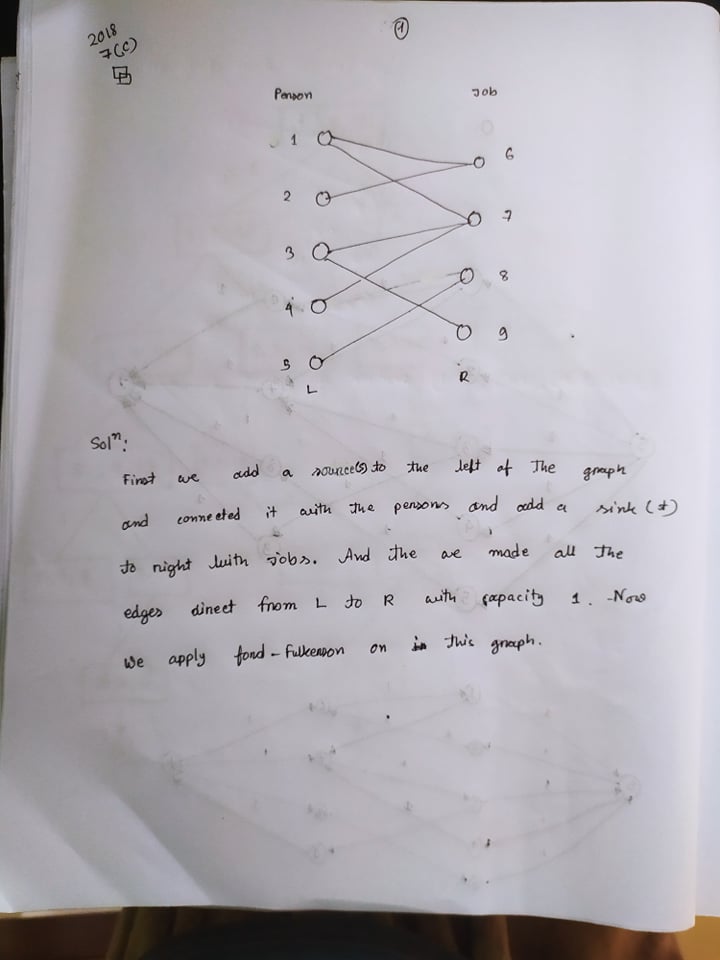 2018
7(c)
1
Person Job
1
6
2
7
3
8
4
9
5
L R
Solⁿ:
First we add a source(s) to the left of The graph
and connected it with the persons and add a sink (t)
to right with jobs. And the we made all The
edges direct from L to R with capacity 1. Now
we apply ford-Fulkerson on in this graph.